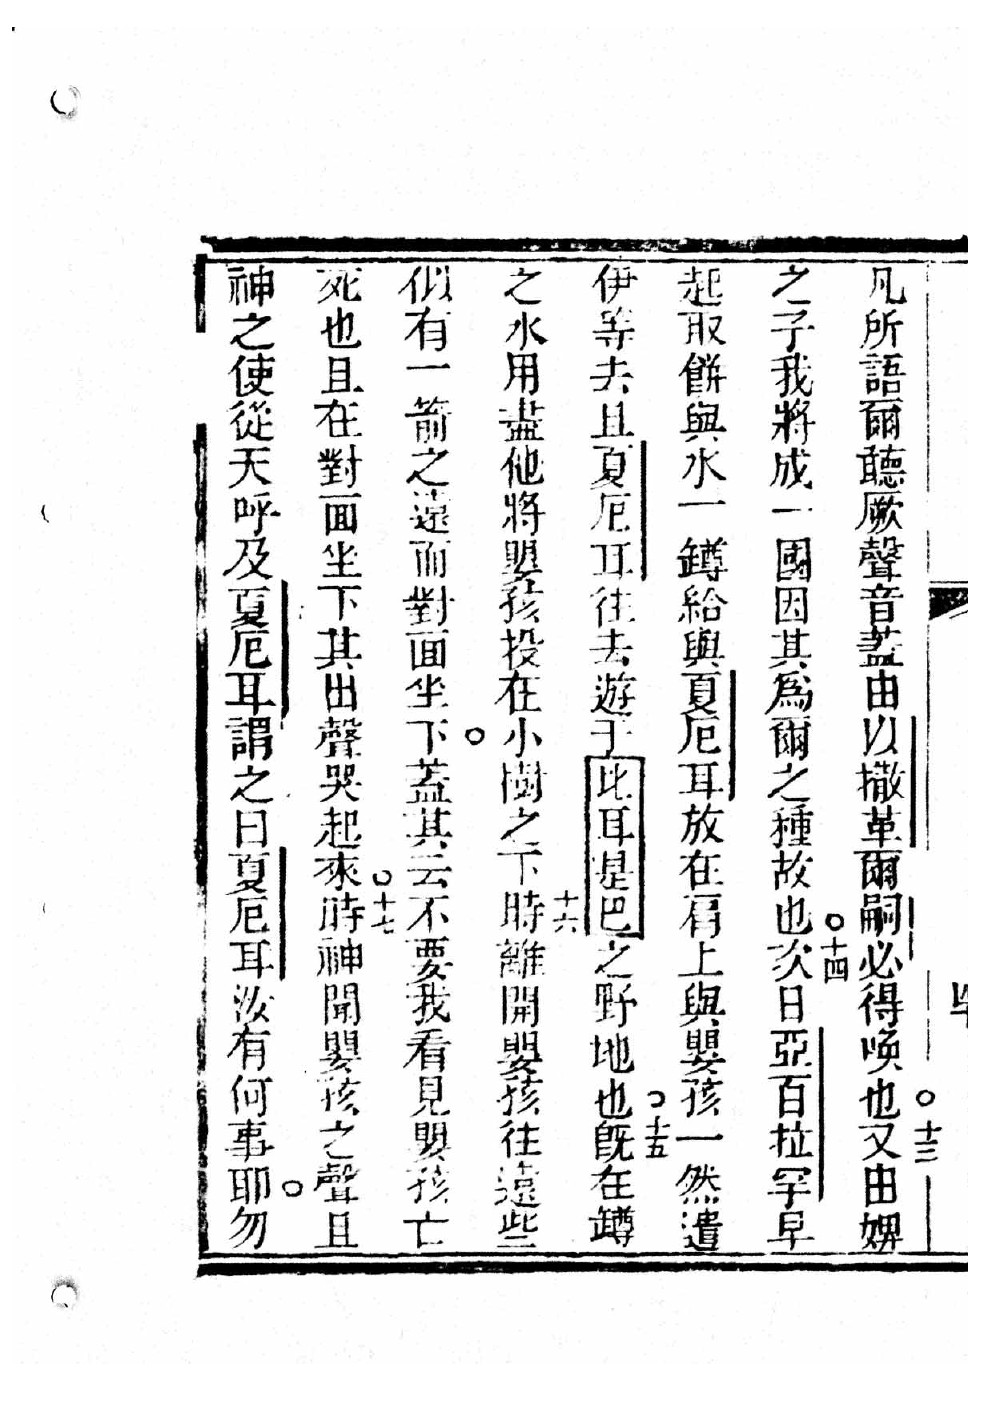 凡所語爾聽厥聲音蓋由以撒革爾嗣必得喚也○十三又由婢
之子我將成一國因其為爾之種故也○十四次日亞百拉罕早
起取餅與水一罇給與夏厄耳放在肩上與嬰孩一然遣
伊等去且夏厄耳往去遊于比耳是巴之野地也○十五既在罇
之水用盡他將嬰孩投在小樹之下○十六時離開嬰孩往遠些
似有一箭之遠而對面坐下蓋其云不要我看見嬰孩亡
死也且在對面坐下其出聲哭起來○十七時神聞嬰孩之聲且
神之使從天呼及夏厄耳謂之曰夏厄耳汝有何事耶○勿